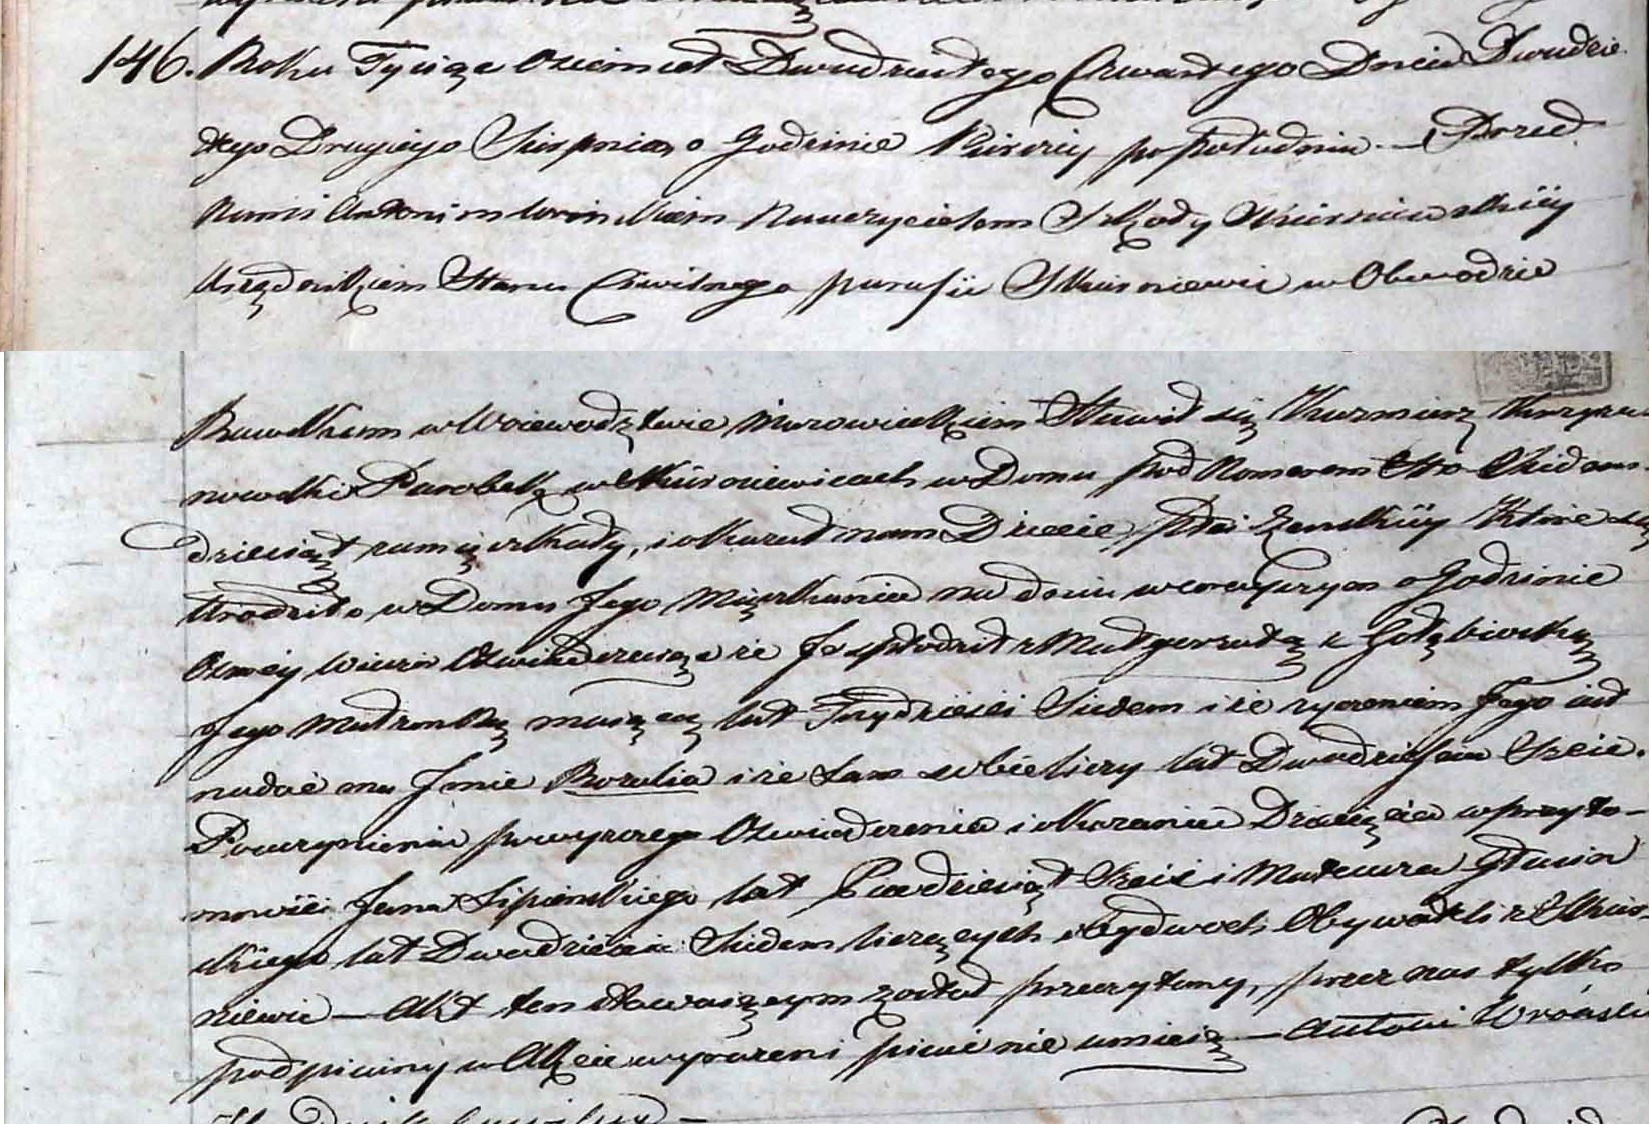 146. Roku Tysiąc Osiemset Dwudziestego Czwartego Dnia Dwudzie
stego Drugiego Sierpnia, o Godzinie Pierszey po południu. — Przed
Nami Antonim Wrońskiem Nauczycielem Szkoły Skierniewskiey
Urzędnikiem Stanu Cywilnego parafii Skierniewic w Obwodzie
Rawskiem w Woiewodztwie Mazowieckiem Stawił się Kazmierz
nowski Parobek w Skierniewicach w Domu pod Numerem Sto Siedem
dziesiąt zamięszkały, i okazał nam Dziecię płci żenskiey które się
Urodziło w Domu Jego Mięszkania na dniu wczorayszym o Godzinie
Osmey Wieczor Oswiadczaiąc że Je spłodził z Małgorzatą z Gołębiowską
Jego Małżonką maiącą lat Trzydzieści Siedem i że życzeniem Jego iest
nadać mu Jmie Rozalia i że Sam sobie liczy lat Dwadzieścia Sześć.
Po uczynieniu powyższego Oswiadczenia i okazaniu Dziecięcia w przyto-
mności Jana Lipinskiego lat Piedziesiąt Sześć i Mateusza Głuchow
skiego lat Dwadzieścia Siedem liczących obydwoch Obywateli z Skier
niewic — Akt ten stawaiącym został przeczytany, przez nas tylko
podpisany w Akcie wyrażeni pisać nie umieią — Antoni Wroński